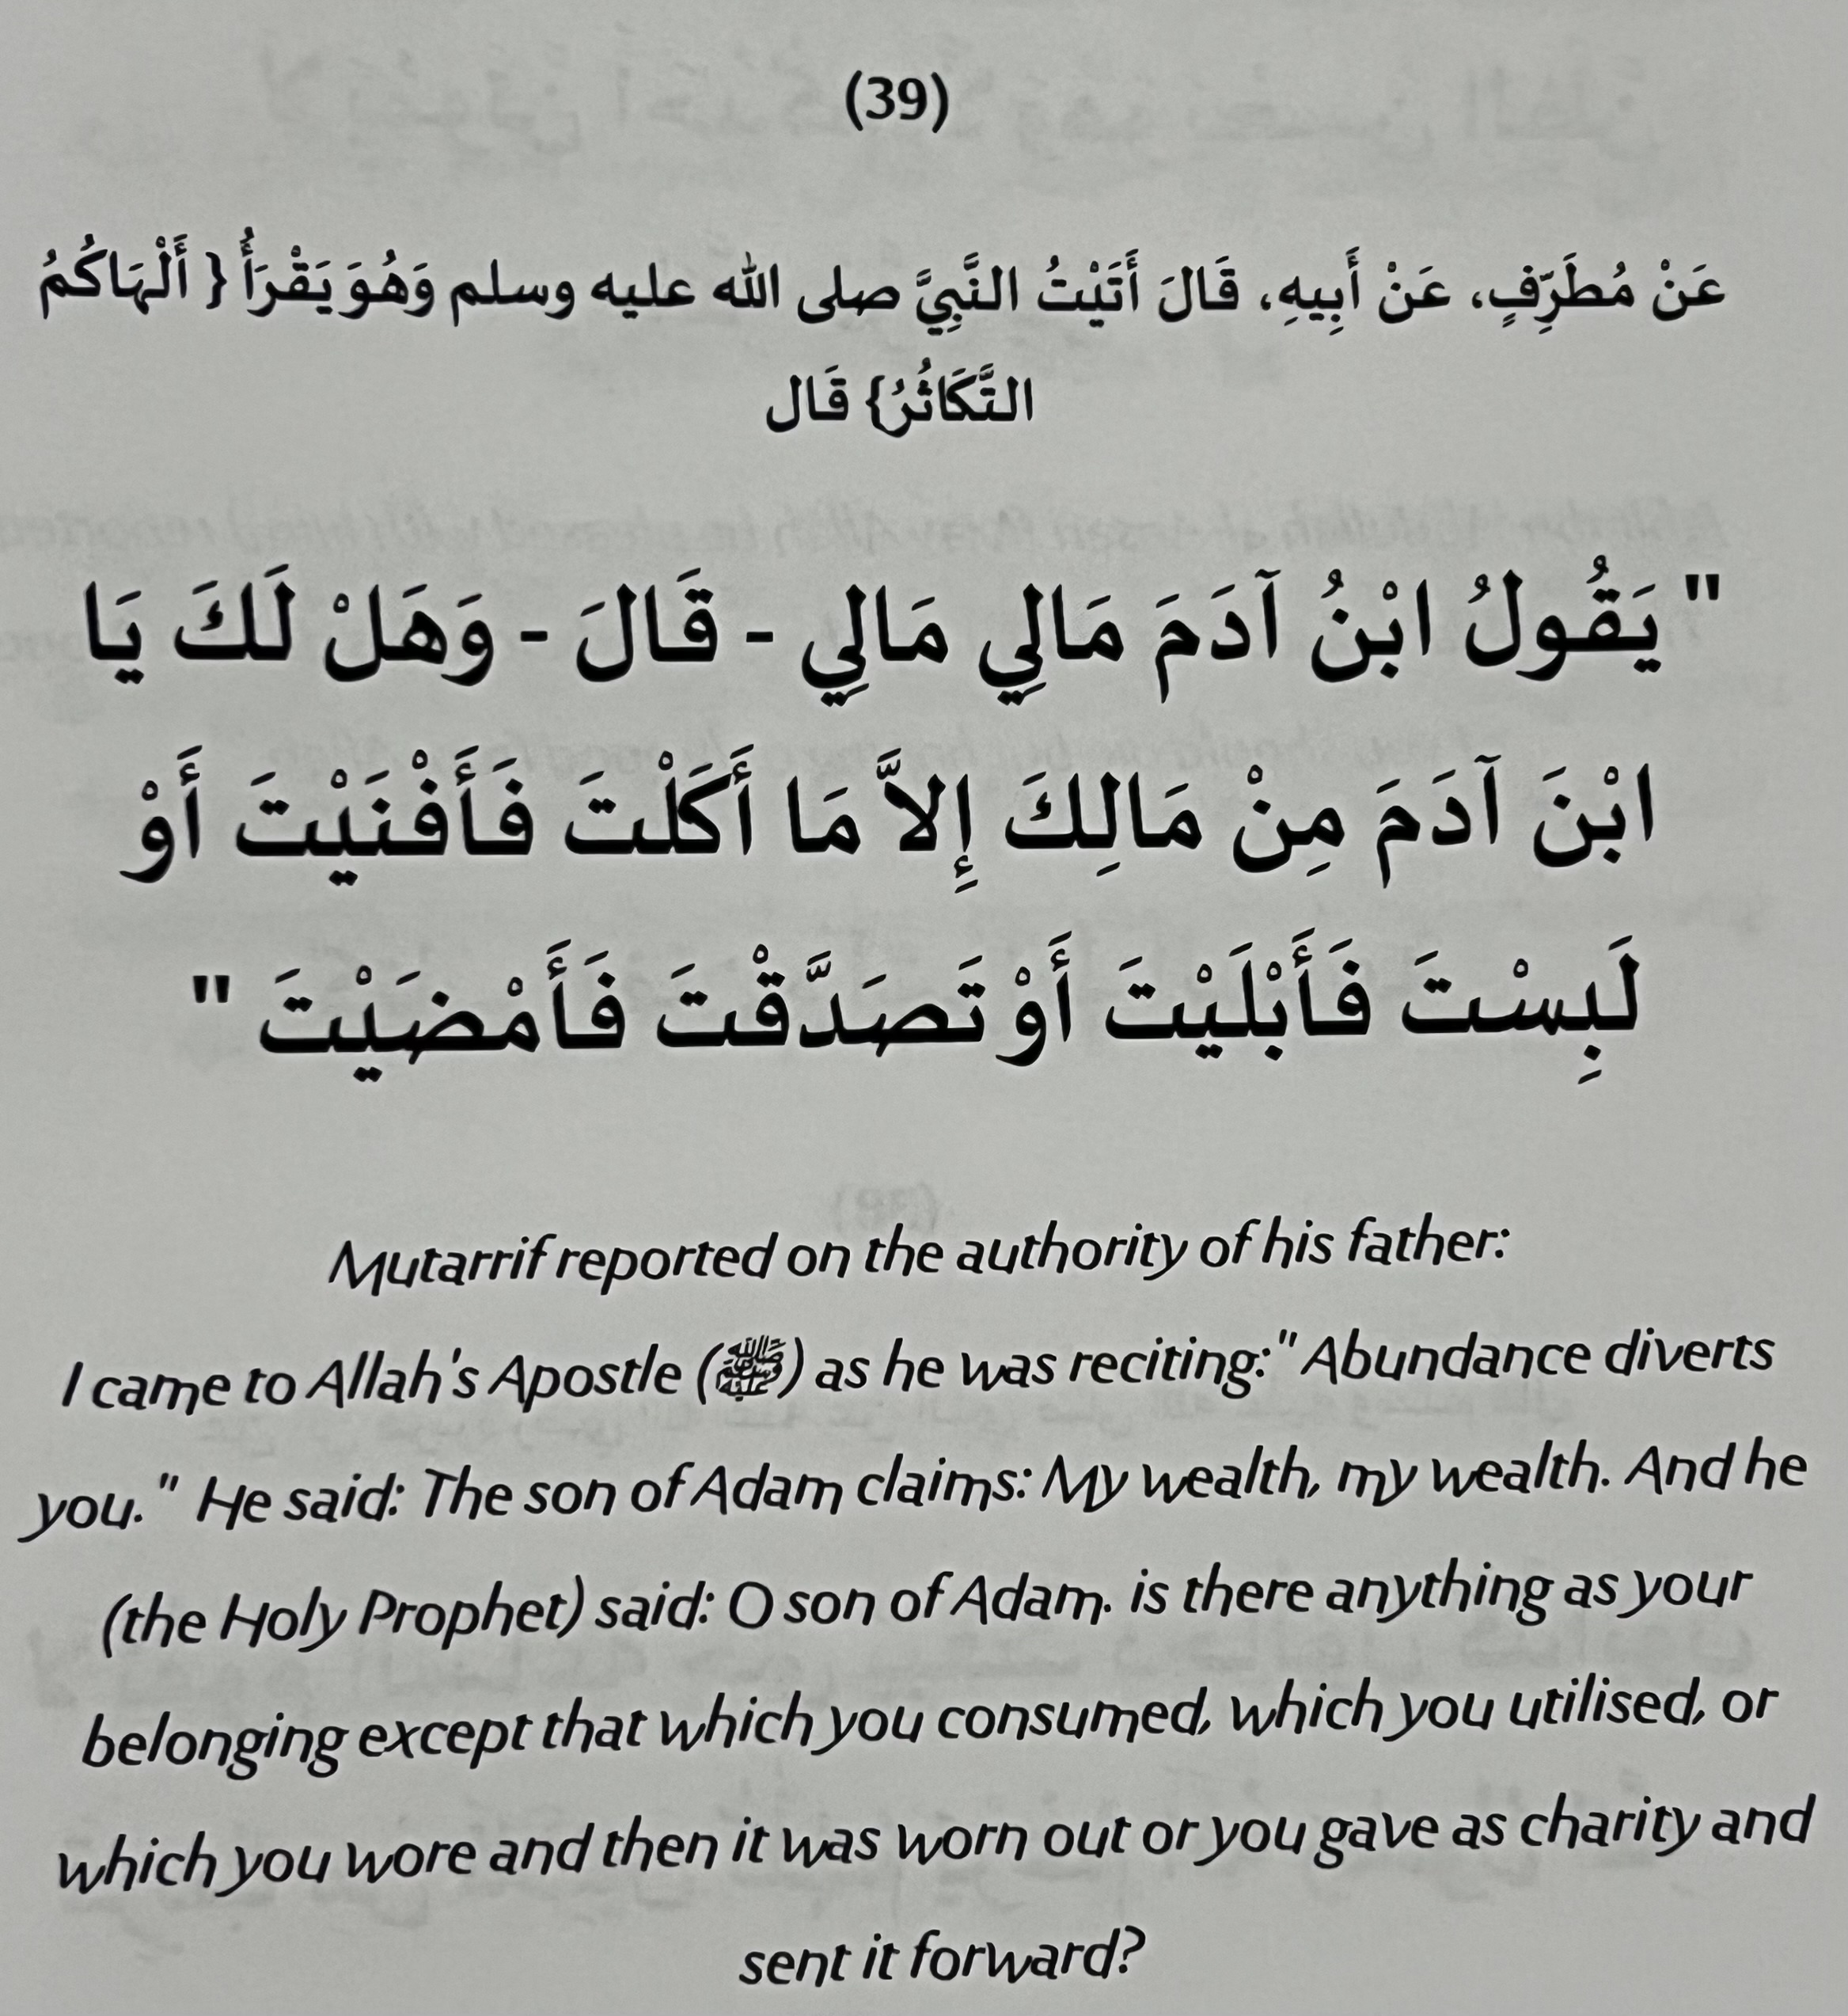 (39)
عَنْ مُطَرِّفٍ، عَنْ أَبِيهِ، قَالَ أَتَيْتُ النَّبِيَّ صلى الله عليه وسلم وَهُوَ يَقْرَأُ { أَلْهَاكُمُ
التَّكَاثُرُ} قَال
" يَقُولُ ابْنُ آدَمَ مَالِي مَالِي - قَالَ - وَهَلْ لَكَ يَا
ابْنَ آدَمَ مِنْ مَالِكَ إِلاَّ مَا أَكَلْتَ فَأَفْنَيْتَ أَوْ
لَبِسْتَ فَأَبْلَيْتَ أَوْ تَصَدَّقْتَ فَأَمْضَيْتَ "
Mutarrif reported on the authority of his father:
I came to Allah's Apostle (ﷺ) as he was reciting:" Abundance diverts
you. " He said: The son of Adam claims: My wealth, my wealth. And he
(the Holy Prophet) said: O son of Adam. is there anything as your
belonging except that which you consumed, which you utilised, or
which you wore and then it was worn out or you gave as charity and
sent it forward?